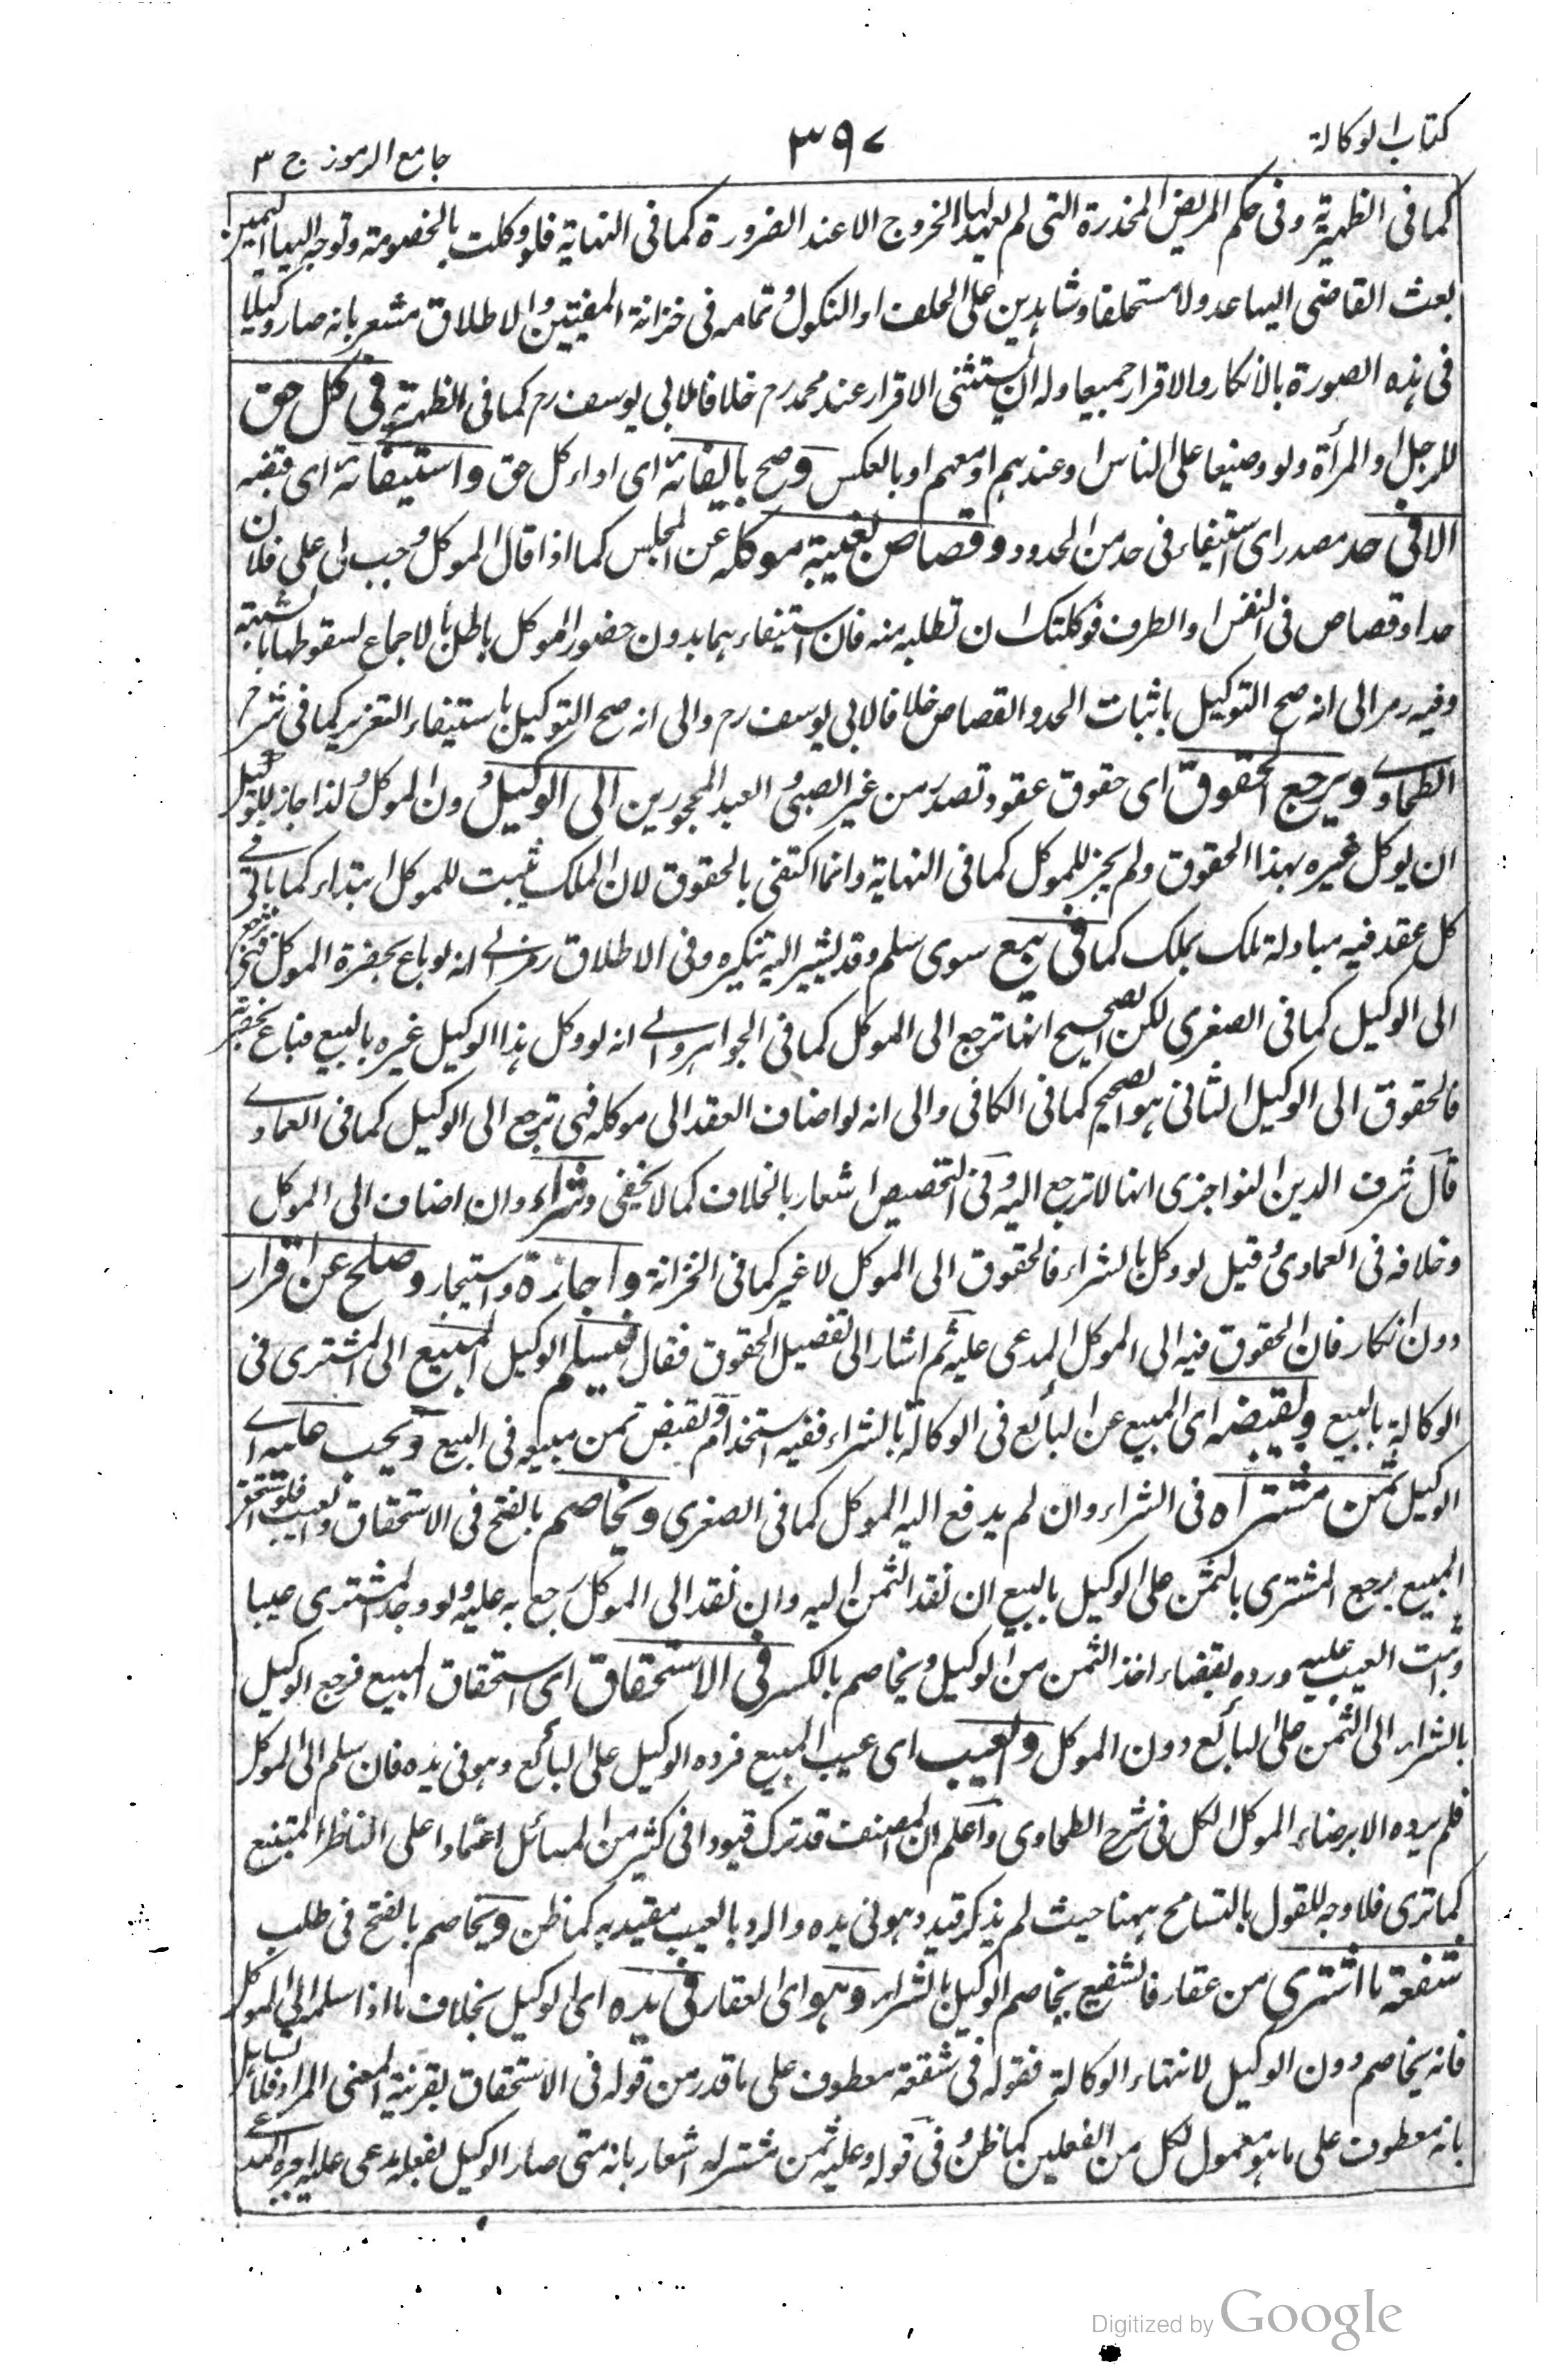 كتاب الوكالة
٣٩٧
جامع الرموز ج ٣
كما فى الظهيرية وفى حكم المريض المخدرة التى لم يعهد لها الخروج الا عند الضرورة كما فى النهاية فلو وكلت بالخصومة وتوجه اليها اليمين
بعث القاضى اليها عدولا مستحلفا وشاهدين على الحلف او النكول وتمامه فى خزانة المفتيين والاطلاق مشعر بانه صار وكيلا
فى هذه الصورة بالانكار والاقرار جميعا وله ان يستثنى الاقرار عند محمد رح خلافا لابى يوسف رح كما فى الظهيرية فى كل حق
للرجل او المرأة ولو وضيعا على الناس او عندهم او معهم او بالعكس وصح بايفائه اى اداء كل حق واستيفائه اى قبضه
الا فى حد مصدر اى استيفاء فى حد من الحدود وقصاص بغيبة موكله عن المجلس كما اذا قال الموكل وجب لى على فلان
حد او قصاص فى النفس او الطرف فوكلتك ان تطلبه منه فان استيفاءهما بدون حضور الموكل باطل بالاجماع لسقوطها بالشبهة
وفيه رمز الى انه صح التوكيل باثبات الحد والقصاص خلافا لابى يوسف رح والى انه صح التوكيل باستيفاء التعزير كما فى شرح
الطحاوى ويرجع الحقوق اى حقوق عقود تصدر من غير الصبى والعبد المحجورين الى الوكيل دون الموكل ولذا جاز للوكيل
ان يوكل غيره بهذا الحقوق ولم يجز للموكل كما فى النهاية وانما اكتفى بالحقوق لان الملك يثبت للموكل ابتداء كما ياتى فى
كل عقد فيه مبادلة ملك بملك كما فى بيع سوى سلم وقد يشير اليه تنكيره وفى الاطلاق رمز الى انه لو باع بحضرة الموكل فهى ترجع
الى الوكيل كما فى الصغرى لكن الصحيح انها ترجع الى الموكل كما فى الجواهر والى انه لو وكل هذا الوكيل غيره بالبيع فباع بحضرته
فالحقوق الى الوكيل الثانى هو الصحيح كما فى الكافى والى انه لو اضاف العقد الى موكله فهى ترجع الى الوكيل كما فى العمادى
قال شرف الدين النواجزى انها لا ترجع اليه وفى التخصيص اشعار بالخلاف كما لا يخفى وشراء وان اضاف الى الموكل
وخلافه فى العمادى وقيل لو وكل بالشراء فالحقوق الى الموكل لا غير كما فى الخزانة واجارة واستيجار وصلح عن اقرار
دون انكار فان الحقوق فيه الى الموكل المدعى عليه ثم اشار الى تفصيل الحقوق فقال فيسلم الوكيل المبيع الى المشترى فى
الوكالة بالبيع ويقبضه اى المبيع عن البائع فى الوكالة بالشراء ففيه استخدام ويقبض ثمن مبيعه فى البيع ويجب عليه اى
الوكيل ثمن مشتراه فى الشراء وان لم يدفع اليه الموكل كما فى الصغرى ويخاصم بالفتح فى الاستحقاق والعيب فلو استحق
المبيع يرجع المشترى بالثمن على الوكيل بالبيع ان نقد الثمن اليه وان نقد الى الموكل رجع به عليه ولو وجد المشترى عيبا
وثبت العيب عليه ورده بقضاء اخذ الثمن من الوكيل ويخاصم بالكسر فى الاستحقاق اى استحقاق المبيع فرجع الوكيل
بالشراء الى الثمن على البائع دون الموكل والعيب اى عيب المبيع فرده الوكيل على البائع وهو فى يده فان سلم الى الموكل
فلم يرده الا برضاء الموكل الكل فى شرح الطحاوى واعلم ان المصنف قد ترك قيودا فى كثير من المسائل اعتمادا على الناظر المتتبع
كما ترى فلا وجه للقول بالتسامح ههنا حيث لم يذكر قيد وهو فى يده والرد بالعيب مقيد به كما ظن ويخاصم بالفتح فى طلب
شفعة ما اشترى من عقار فالشفيع يخاصم الوكيل بالشراء وهو اى العقار فى يده اى الوكيل بخلاف ما اذا سلمه الى الموكل
فانه يخاصم دون الوكيل لانتهاء الوكالة فقوله فى شفعة معطوف على ما قدر من قوله فى الاستحقاق بقرينة المعنى المراد فلا تساهل
بانه معطوف على ما هو معمول لكل من الفعلين كما ظن وفى قوله وعليه ثمن مشتراه اشعار بانه متى صار الوكيل بفعله مدعى عليه
Digitized by Google